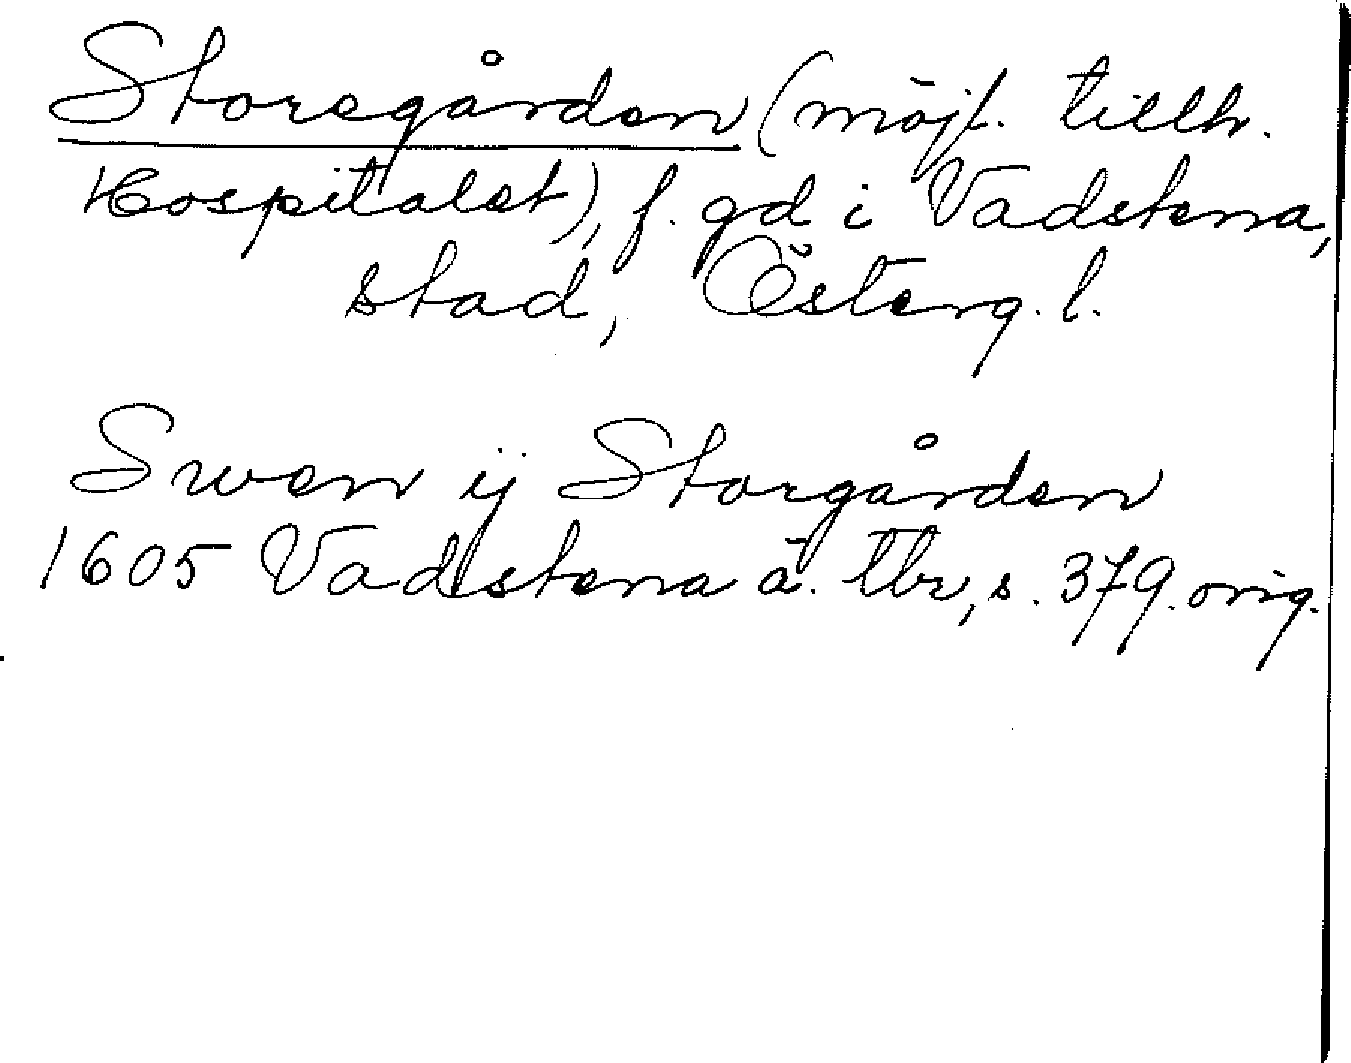 Storegården (möjl. tillh.
Hospitalet), f. gd i Vadstena,
stad, Österg. l.
Swen ij Storgården
1605 Vadstena ä. tbr, s. 379. orig.